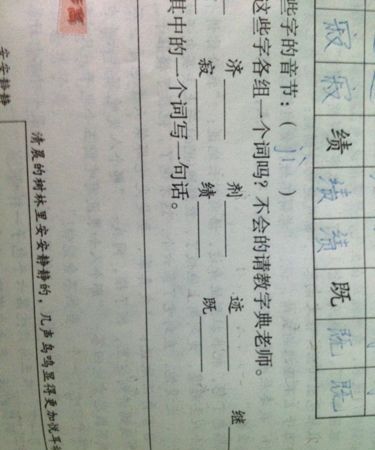 寂 寂 绩 绩 绩 既 既 既
些字的音节:( jì )
这些字各组一个词吗?不会的请教字典老师。
济______ 剂______ 迹______ 继
寂______ 绩______ 既______
其中的一个词写一句话。
安安静静
清晨的树林里安安静静的,几声鸟鸣显得更加悦耳